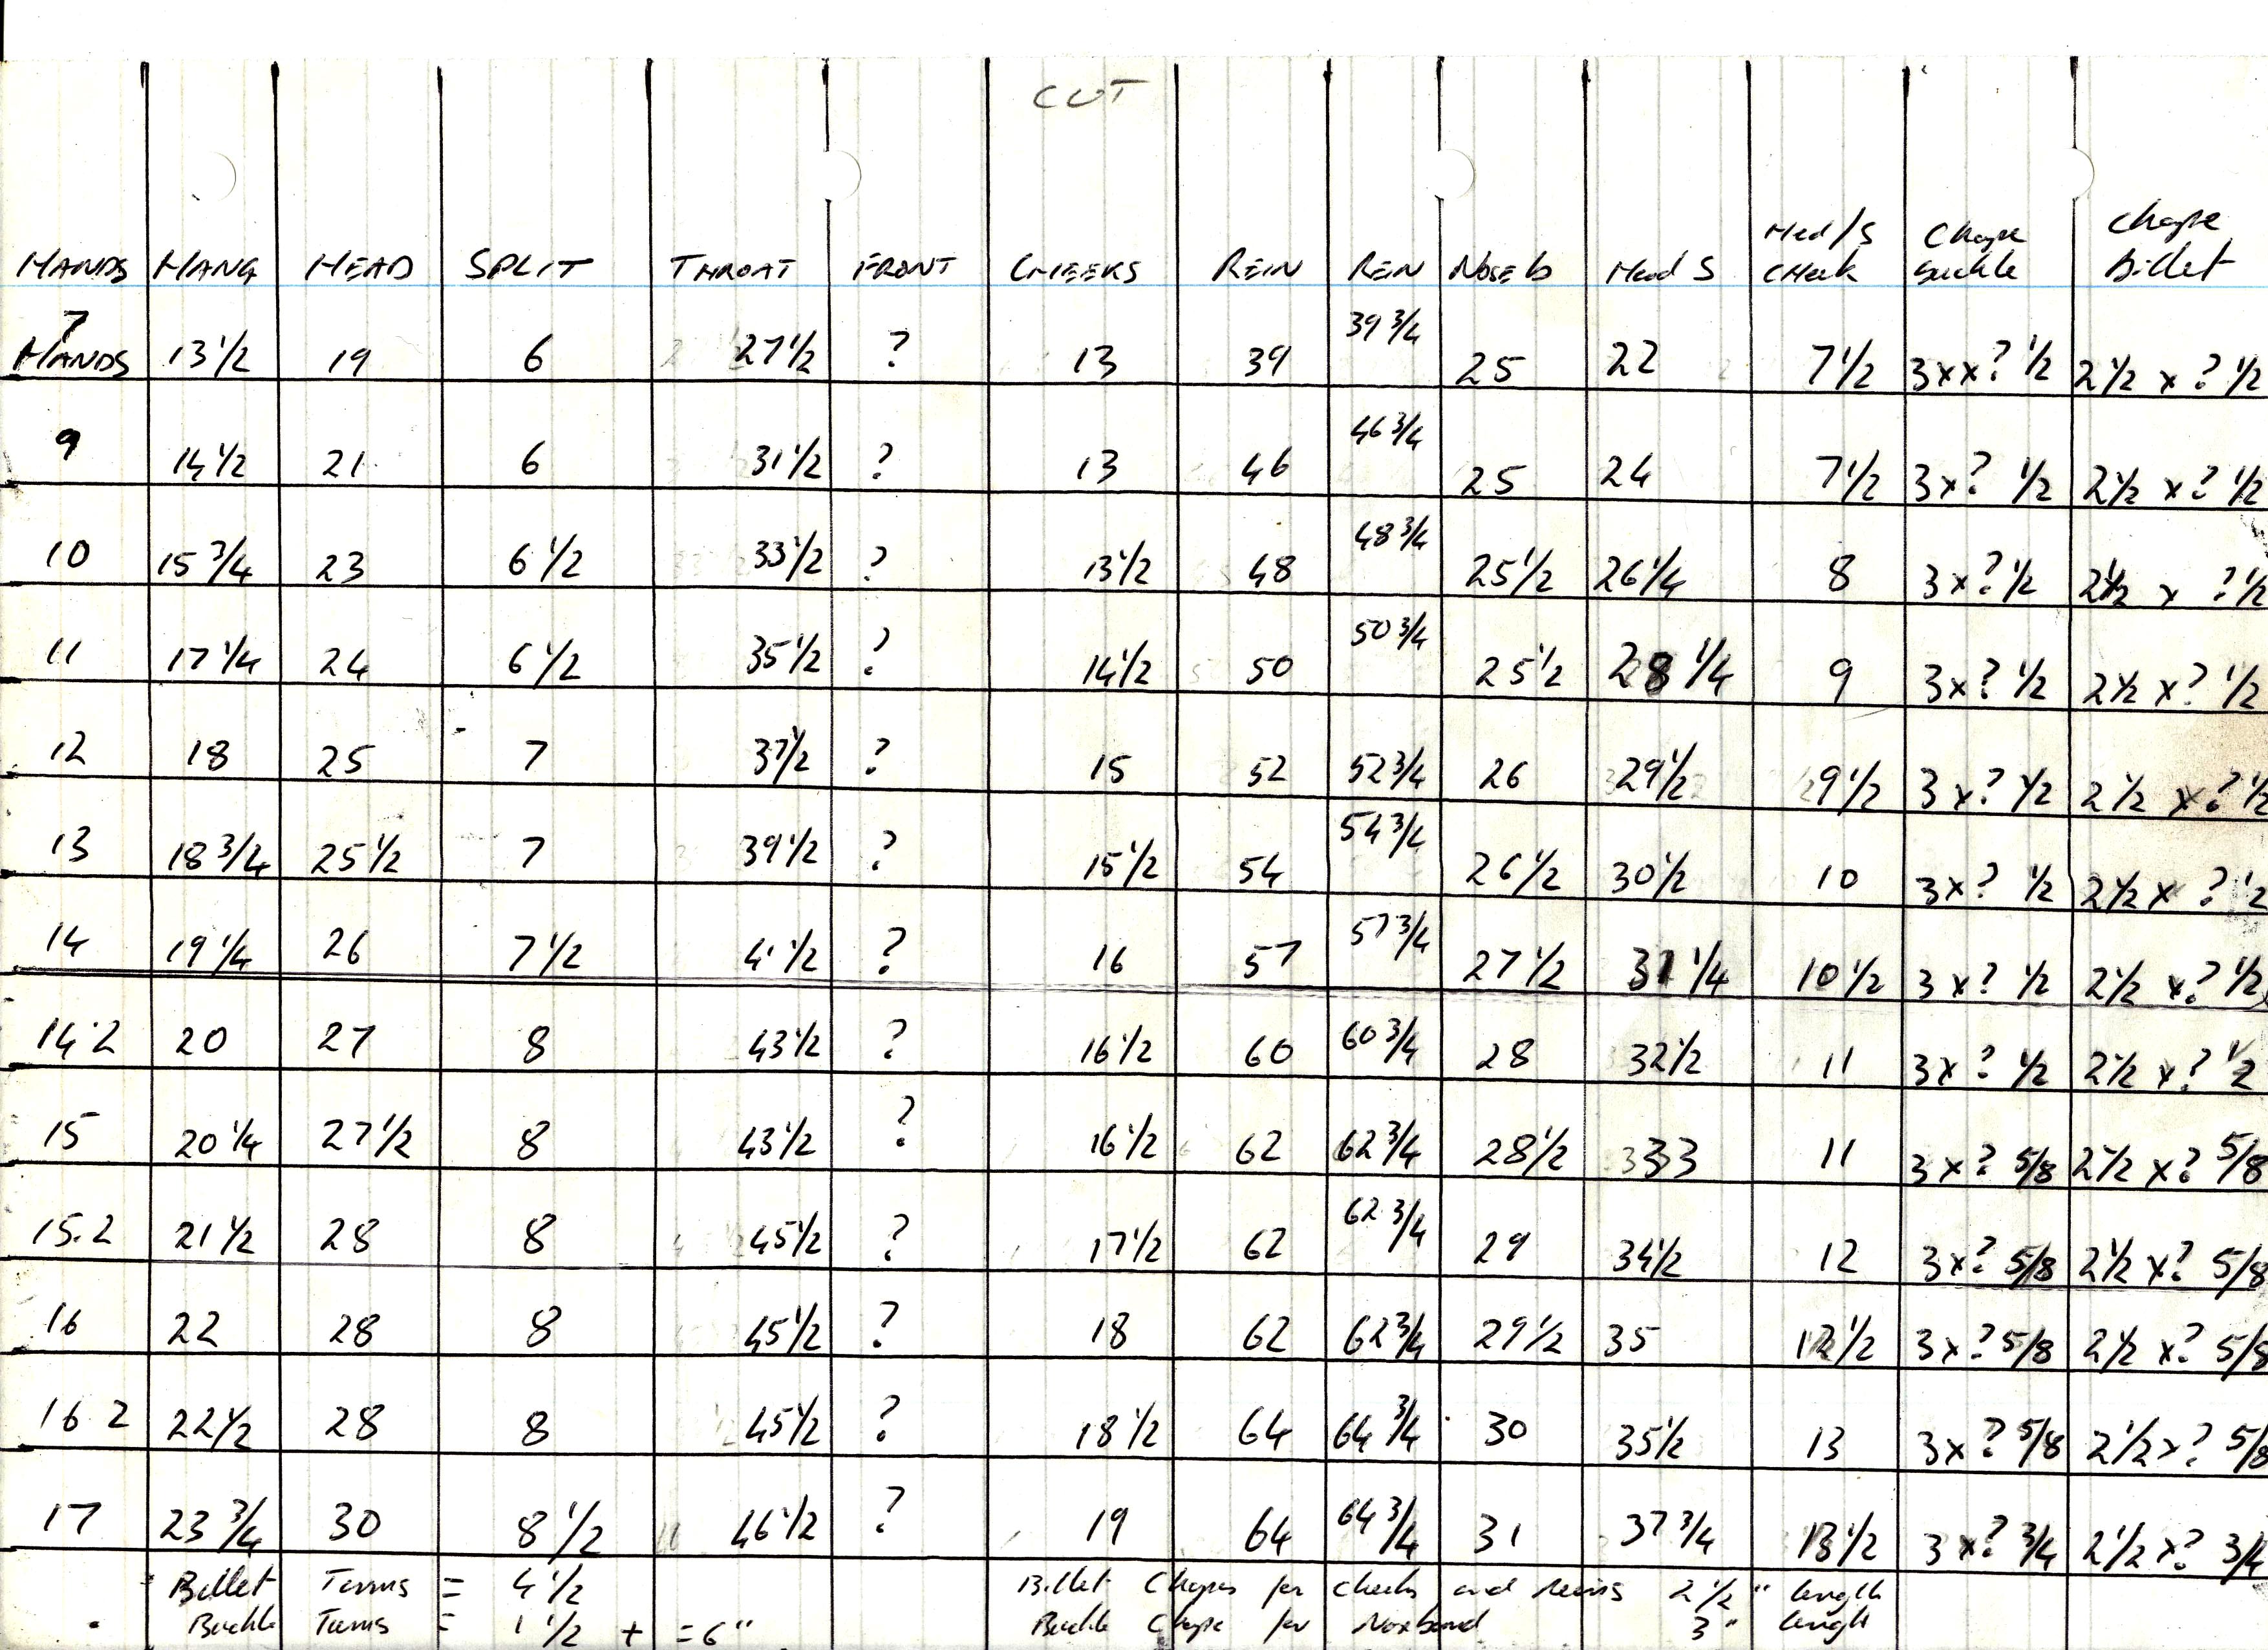 CUT
HANDS HANG HEAD SPLIT THROAT FRONT CHEEKS REIN REIN NOSE b Head S Hed/S CHeek Chape buckle Chape Billet
7 HANDS 13 1/2 19 6 27 1/2 ? 13 39 39 3/4 25 22 7 1/2 3xx? 1/2 2 1/2 x ? 1/2
9 14 1/2 21 6 31 1/2 ? 13 46 46 3/4 25 24 7 1/2 3x? 1/2 2 1/2 x? 1/2
10 15 3/4 23 6 1/2 33 1/2 ? 13 1/2 48 48 3/4 25 1/2 26 1/4 8 3x? 1/2 2 1/2 x ? 1/2
11 17 1/4 24 6 1/2 35 1/2 ? 14 1/2 50 50 3/4 25 1/2 28 1/4 9 3x? 1/2 2 1/2 x? 1/2
12 18 25 7 37 1/2 ? 15 52 52 3/4 26 29 1/2 9 1/2 3x? 1/2 2 1/2 x? 1/2
13 18 3/4 25 1/2 7 39 1/2 ? 15 1/2 54 54 3/4 26 1/2 30 1/2 10 3x? 1/2 2 1/2 x ? 1/2
14 19 1/4 26 7 1/2 41 1/2 ? 16 57 57 3/4 27 1/2 31 1/4 10 1/2 3x? 1/2 2 1/2 x? 1/2
14.2 20 27 8 43 1/2 ? 16 1/2 60 60 3/4 28 32 1/2 11 3x? 1/2 2 1/2 x? 1/2
15 20 1/4 27 1/2 8 43 1/2 ? 16 1/2 62 62 3/4 28 1/2 33 11 3x? 5/8 2 1/2 x? 5/8
15.2 21 1/2 28 8 45 1/2 ? 17 1/2 62 62 3/4 29 34 1/2 12 3x? 5/8 2 1/2 x? 5/8
16 22 28 8 45 1/2 ? 18 62 62 3/4 29 1/2 35 12 1/2 3x? 5/8 2 1/2 x? 5/8
16 2 22 1/2 28 8 45 1/2 ? 18 1/2 64 64 3/4 30 35 1/2 13 3x? 5/8 2 1/2 x? 5/8
17 23 3/4 30 8 1/2 46 1/2 ? 19 64 64 3/4 31 37 3/4 13 1/2 3x? 3/4 2 1/2 x? 3/4
Billet Turns = 4 1/2 Billet Chapes for cheeks and reins 2 1/2" length
Buckle Turns = 1 1/2 + =6" Buckle Chape for Noseband 3" length